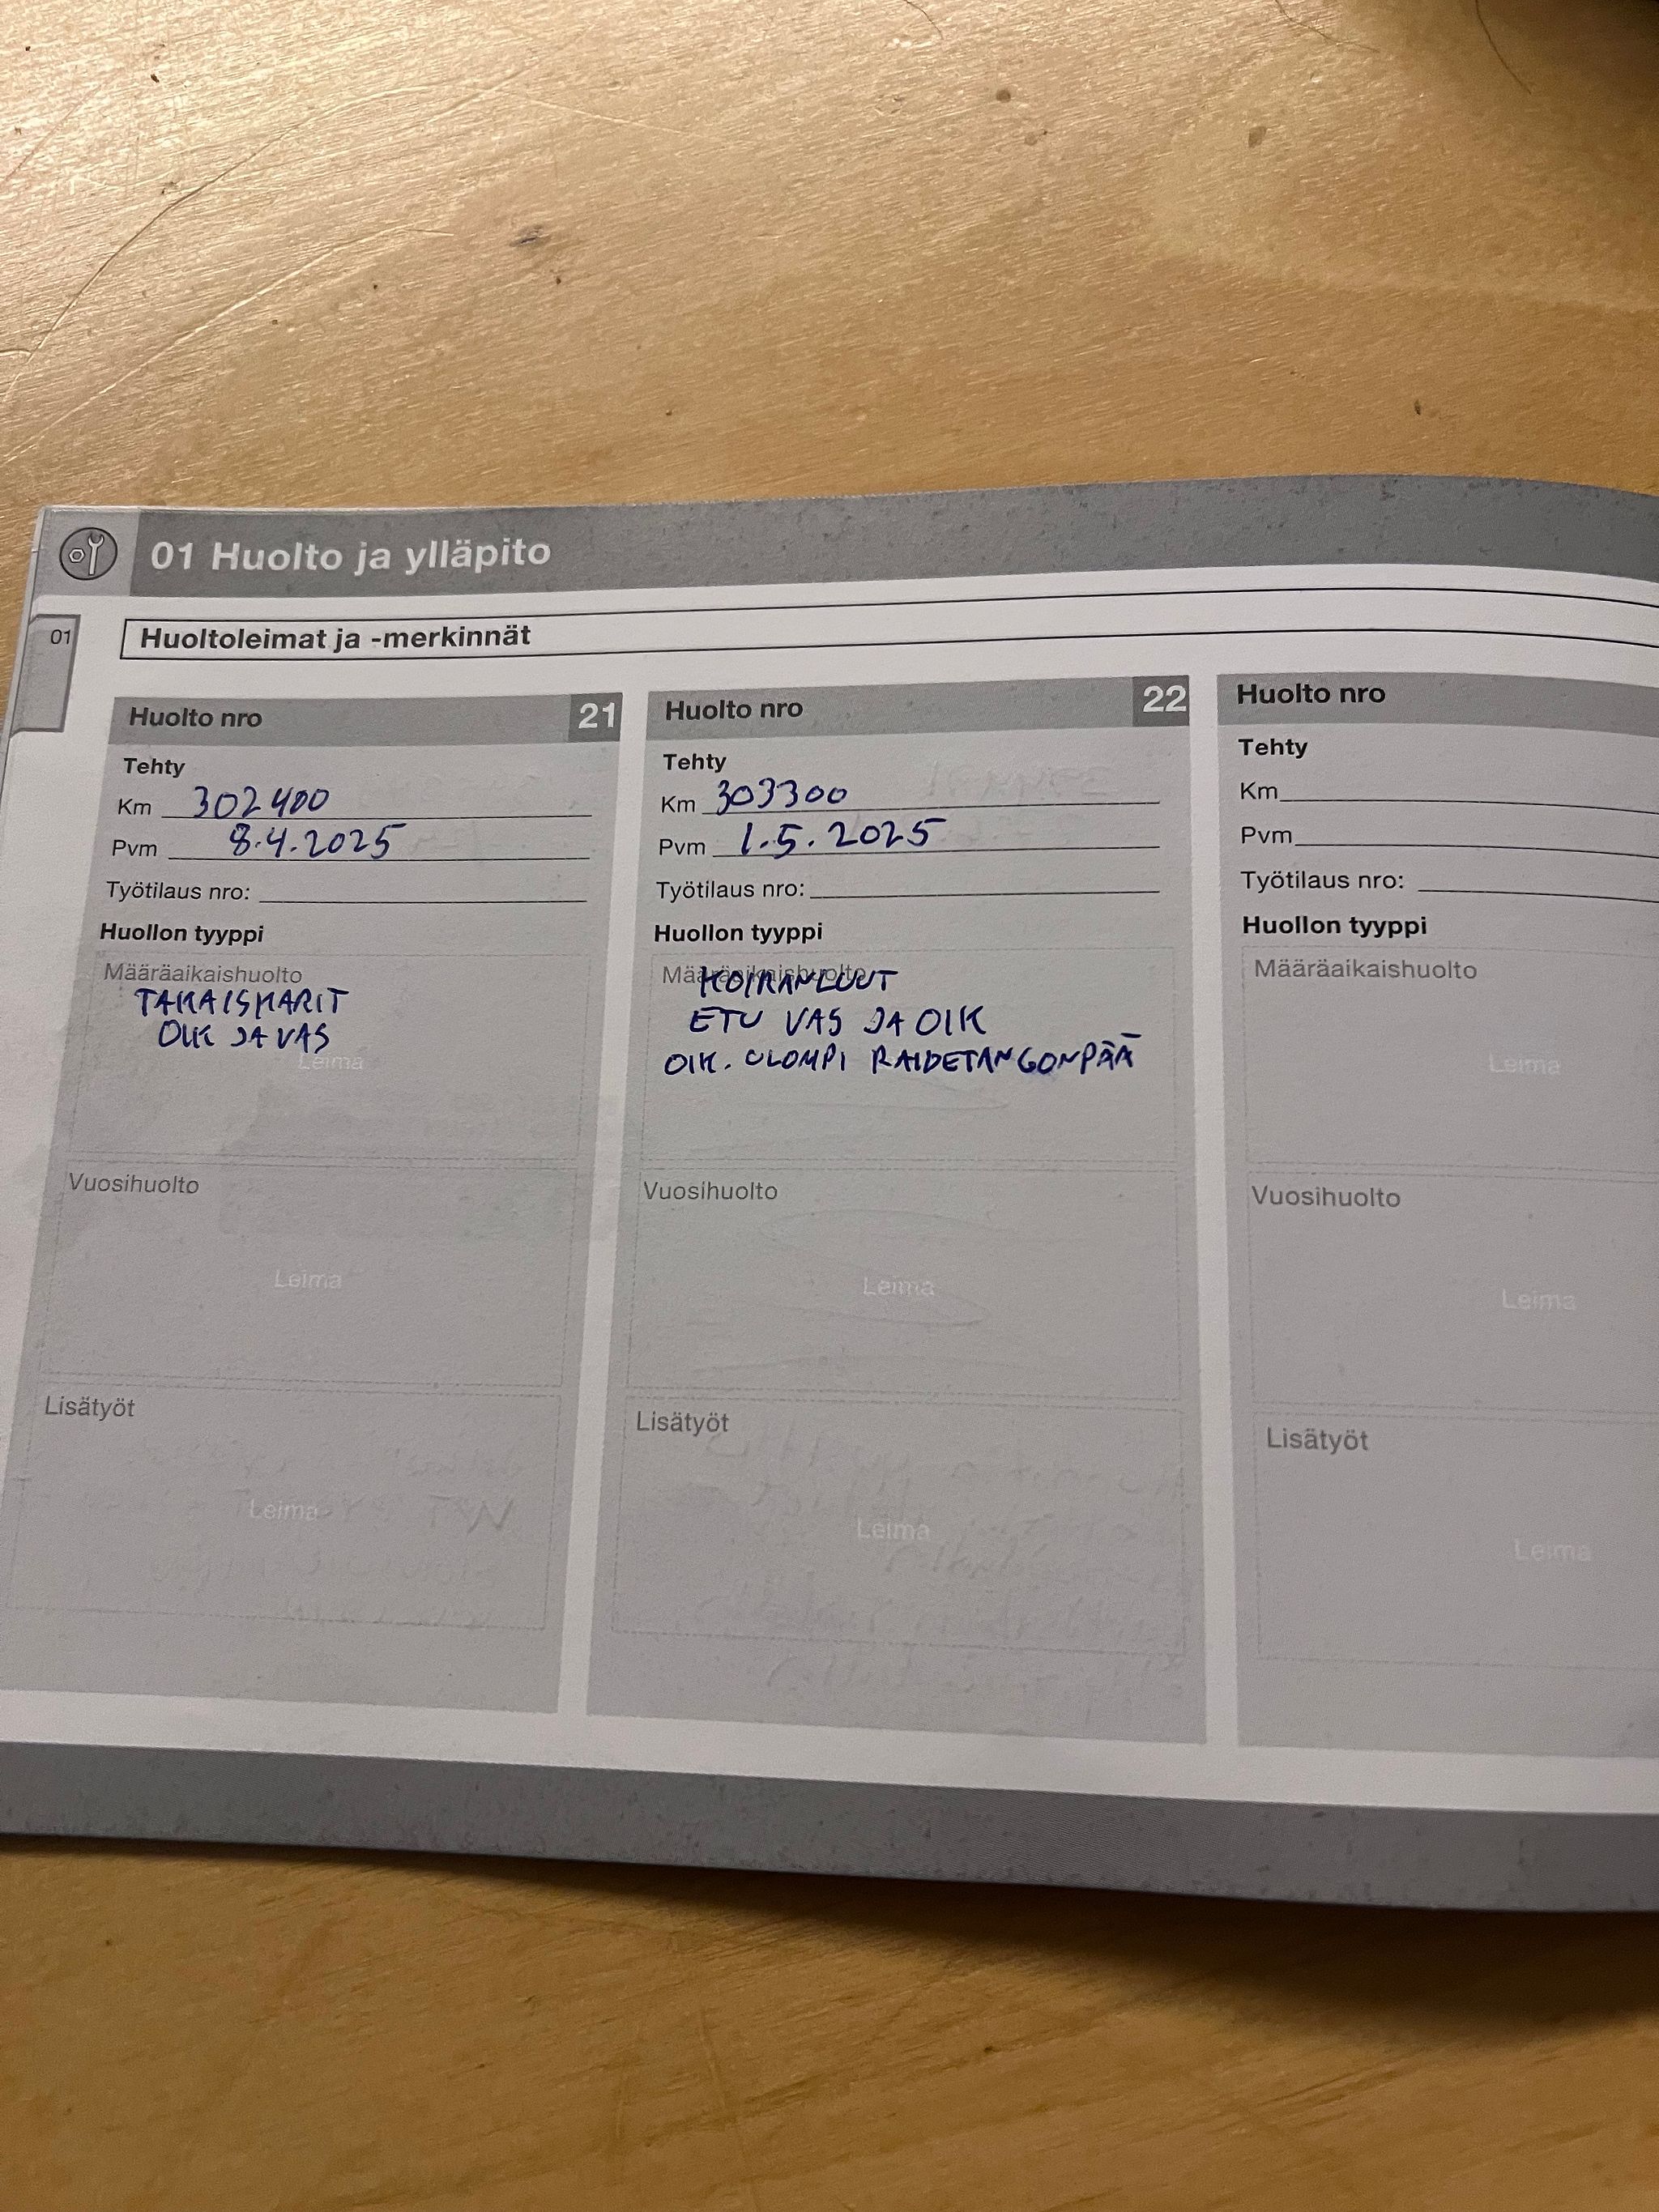 01 Huolto ja ylläpito
01
Huoltoleimat ja -merkinnät
Huolto nro 21
Tehty
Km 302400
Pvm 8.4.2025
Työtilaus nro:
Huollon tyyppi
Määräaikaishuolto
TAKAISKARIT
OIK JA VAS
Leima
Vuosihuolto
Leima
Lisätyöt
Leima
Huolto nro 22
Tehty
Km 303300
Pvm 1.5.2025
Työtilaus nro:
Huollon tyyppi
Määräaikaishuolto
KOIRANLUUT
ETU VAS JA OIK
OIK. ULOMPI RAIDETANGONPÄÄ
Vuosihuolto
Leima
Lisätyöt
Leima
Huolto nro
Tehty
Km
Pvm
Työtilaus nro:
Huollon tyyppi
Määräaikaishuolto
Leima
Vuosihuolto
Leima
Lisätyöt
Leima